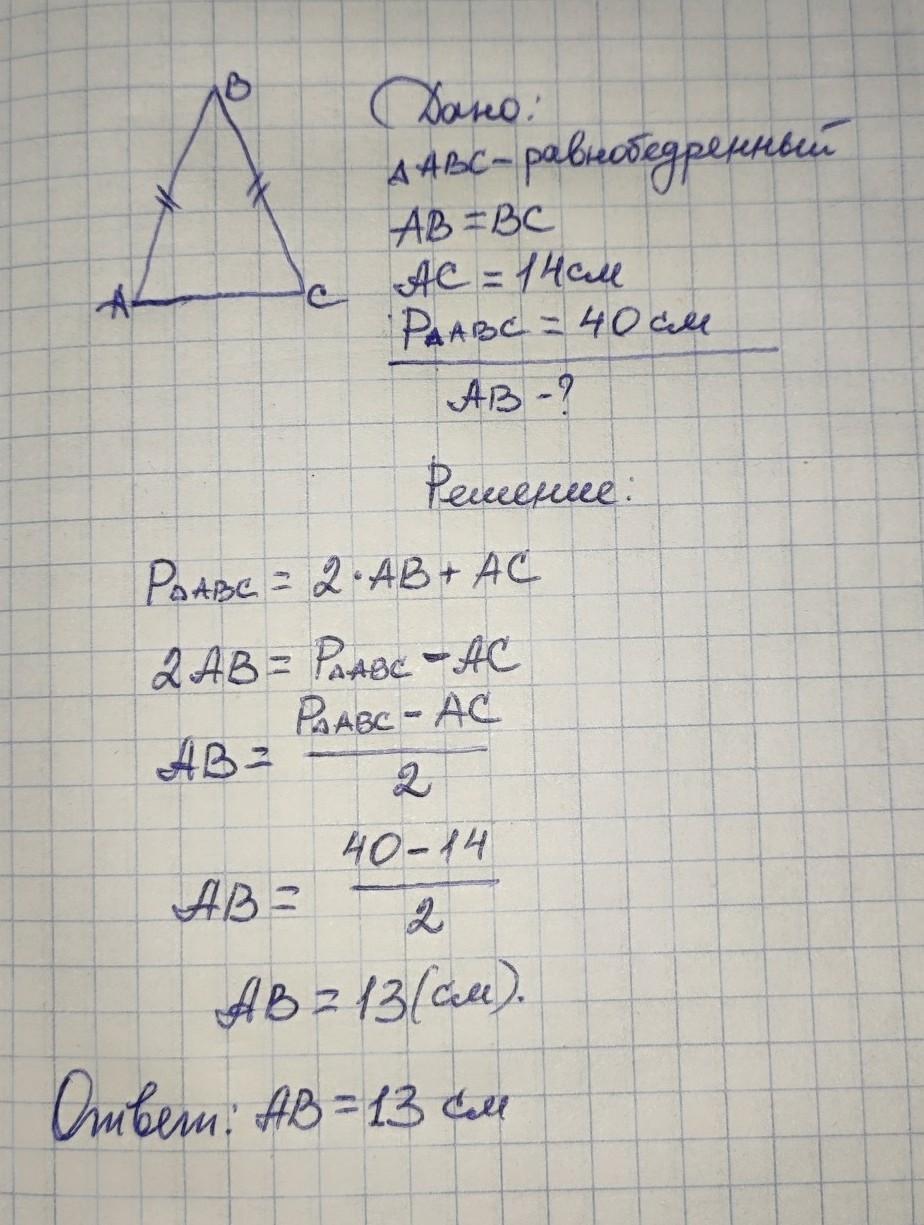 B
A
C
Дано:
△ABC - равнобедренный
AB = BC
AC = 14см
P△ABC = 40 см
AB - ?
Решение:
P△ABC = 2·AB + AC
2AB = P△ABC - AC
AB = P△ABC - AC / 2
AB = 40 - 14 / 2
AB = 13 (см).
Ответ: AB = 13 см